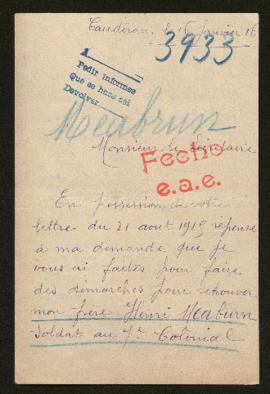 Caudéran, le 15 Janvier 16
3933
Pedir informes
Que se ha
Devolver
Meabrun
Monsieur le Secrétaire
Fecho
e.a.e.
En possession de votre
lettre du 21 aout 1915 réponse
à ma demande que je
vous ai faites pour faire
des démarches pour retrouver
mon frère Henri Meaburn
Soldat au 7e Colonial